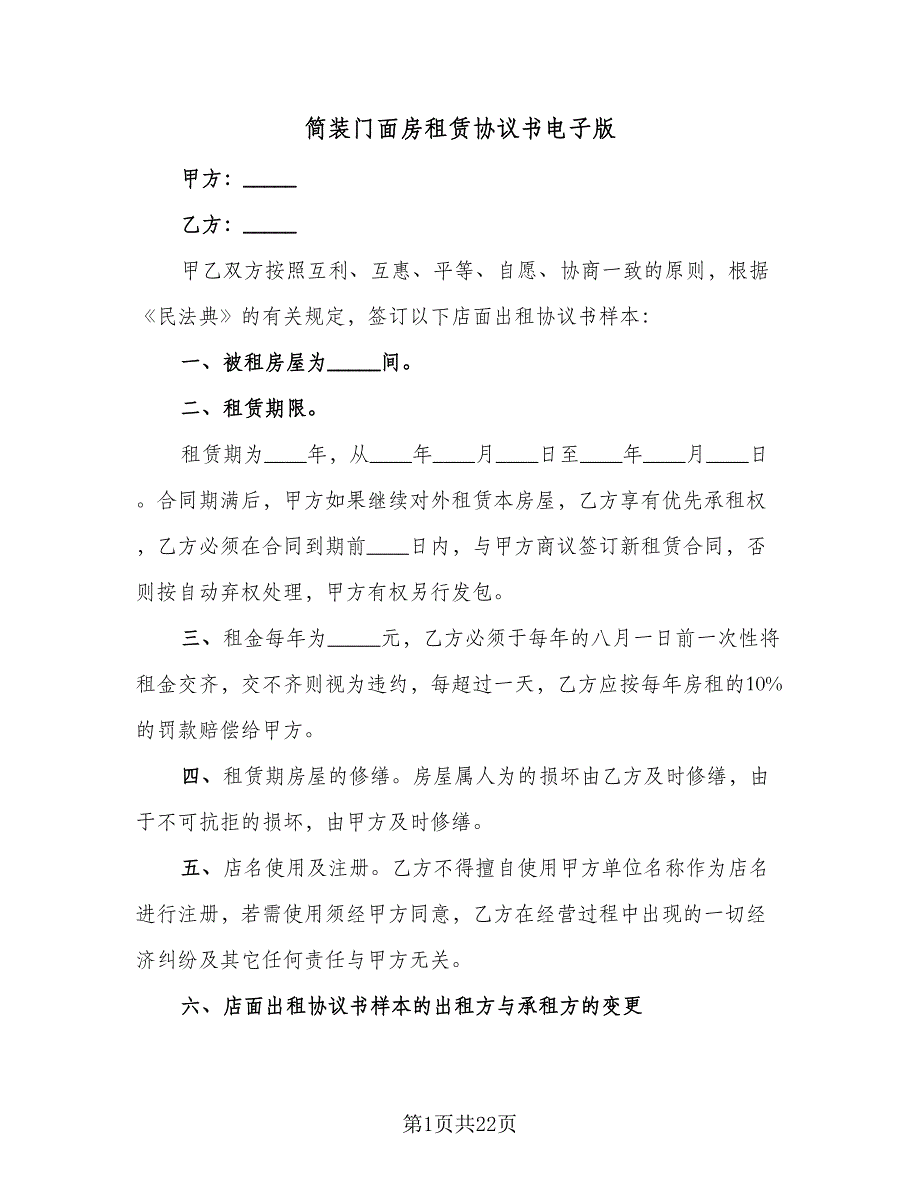 简装门面房租赁协议书电子版
甲方：_____
乙方：_____
甲乙双方按照互利、互惠、平等、自愿、协商一致的原则，根据
《民法典》的有关规定，签订以下店面出租协议书样本：
一、被租房屋为_____间。
二、租赁期限。
租赁期为____年，从____年____月____日至____年____月____日
。合同期满后，甲方如果继续对外租赁本房屋，乙方享有优先承租权
，乙方必须在合同到期前____日内，与甲方商议签订新租赁合同，否
则按自动弃权处理，甲方有权另行发包。
三、租金每年为_____元，乙方必须于每年的八月一日前一次性将
租金交齐，交不齐则视为违约，每超过一天，乙方应按每年房租的10%
的罚款赔偿给甲方。
四、租赁期房屋的修缮。房屋属人为的损坏由乙方及时修缮，由
于不可抗拒的损坏，由甲方及时修缮。
五、店名使用及注册。乙方不得擅自使用甲方单位名称作为店名
进行注册，若需使用须经甲方同意，乙方在经营过程中出现的一切经
济纠纷及其它任何责任与甲方无关。
六、店面出租协议书样本的出租方与承租方的变更
第1页共22页